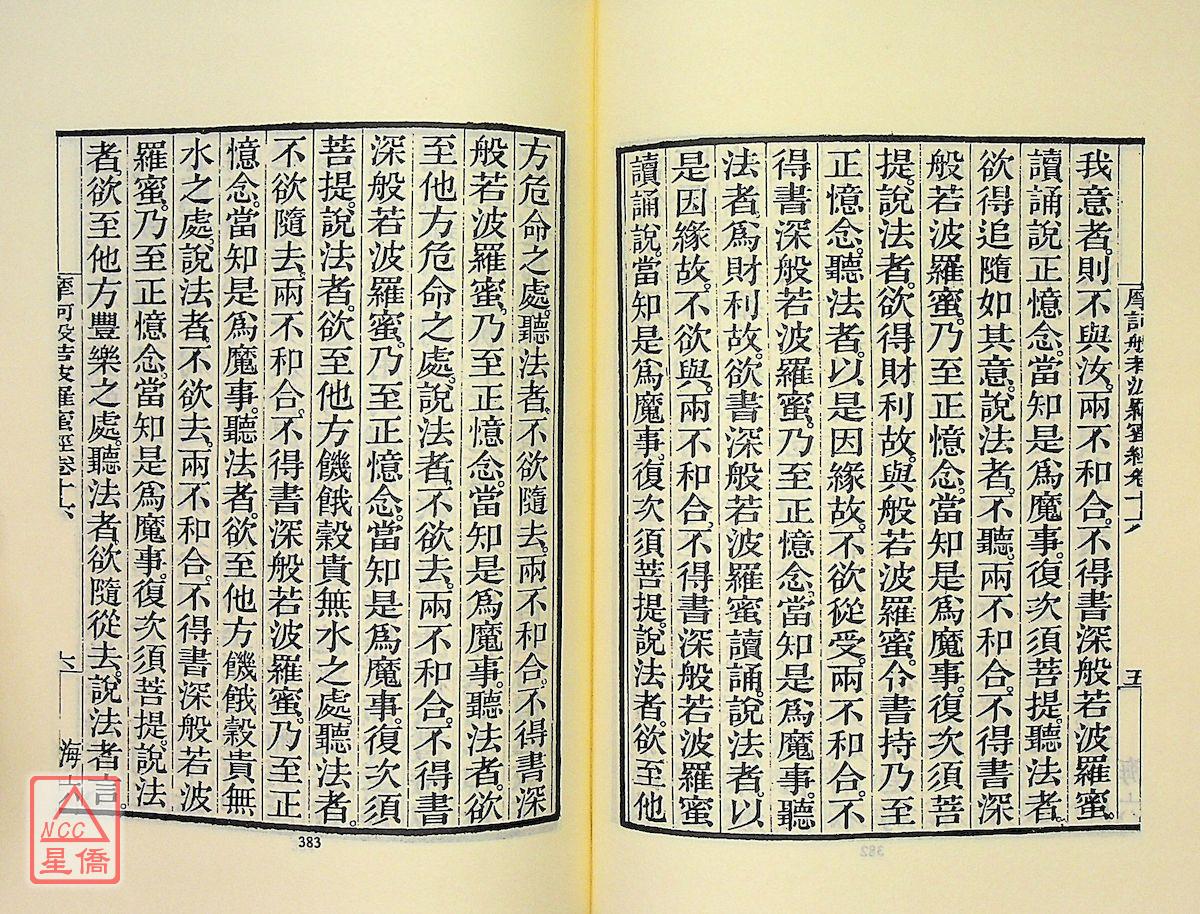 摩訶般若波羅蜜經卷十六
五
我意者則不與汝。兩不和合。不得書深般若波羅蜜。
讀誦說正憶念。當知是為魔事。復次須菩提。聽法者。
欲得追隨如其意。說法者。不聽。兩不和合。不得書深
般若波羅蜜。乃至正憶念。當知是為魔事。復次須菩
提。說法者。欲得財利故。與般若波羅蜜。令書持乃至
正憶念。聽法者。以是因緣故。不欲從受。兩不和合。不
得書深般若波羅蜜。乃至正憶念。當知是為魔事。聽
法者。為財利故。欲書深般若波羅蜜讀誦。說法者。以
是因緣故。不欲與。兩不和合。不得書深般若波羅蜜
讀誦說。當知是為魔事。復次須菩提。說法者。欲至他
382
方危命之處。聽法者。不欲隨去。兩不和合。不得書深
般若波羅蜜。乃至正憶念。當知是為魔事。聽法者。欲
至他方危命之處。說法者。不欲去。兩不和合。不得書
深般若波羅蜜。乃至正憶念。當知是為魔事。復次須
菩提。說法者。欲至他方饑餓穀貴無水之處。聽法者。
不欲隨去。兩不和合。不得書深般若波羅蜜。乃至正
憶念。當知是為魔事。聽法者。欲至他方饑餓穀貴無
水之處。說法者。不欲去。兩不和合。不得書深般若波
羅蜜。乃至正憶念。當知是為魔事。復次須菩提。說法
者。欲至他方豐樂之處。聽法者。欲隨從去。說法者言。
摩訶般若波羅蜜經卷十六
六
海
383
NCC
星僑